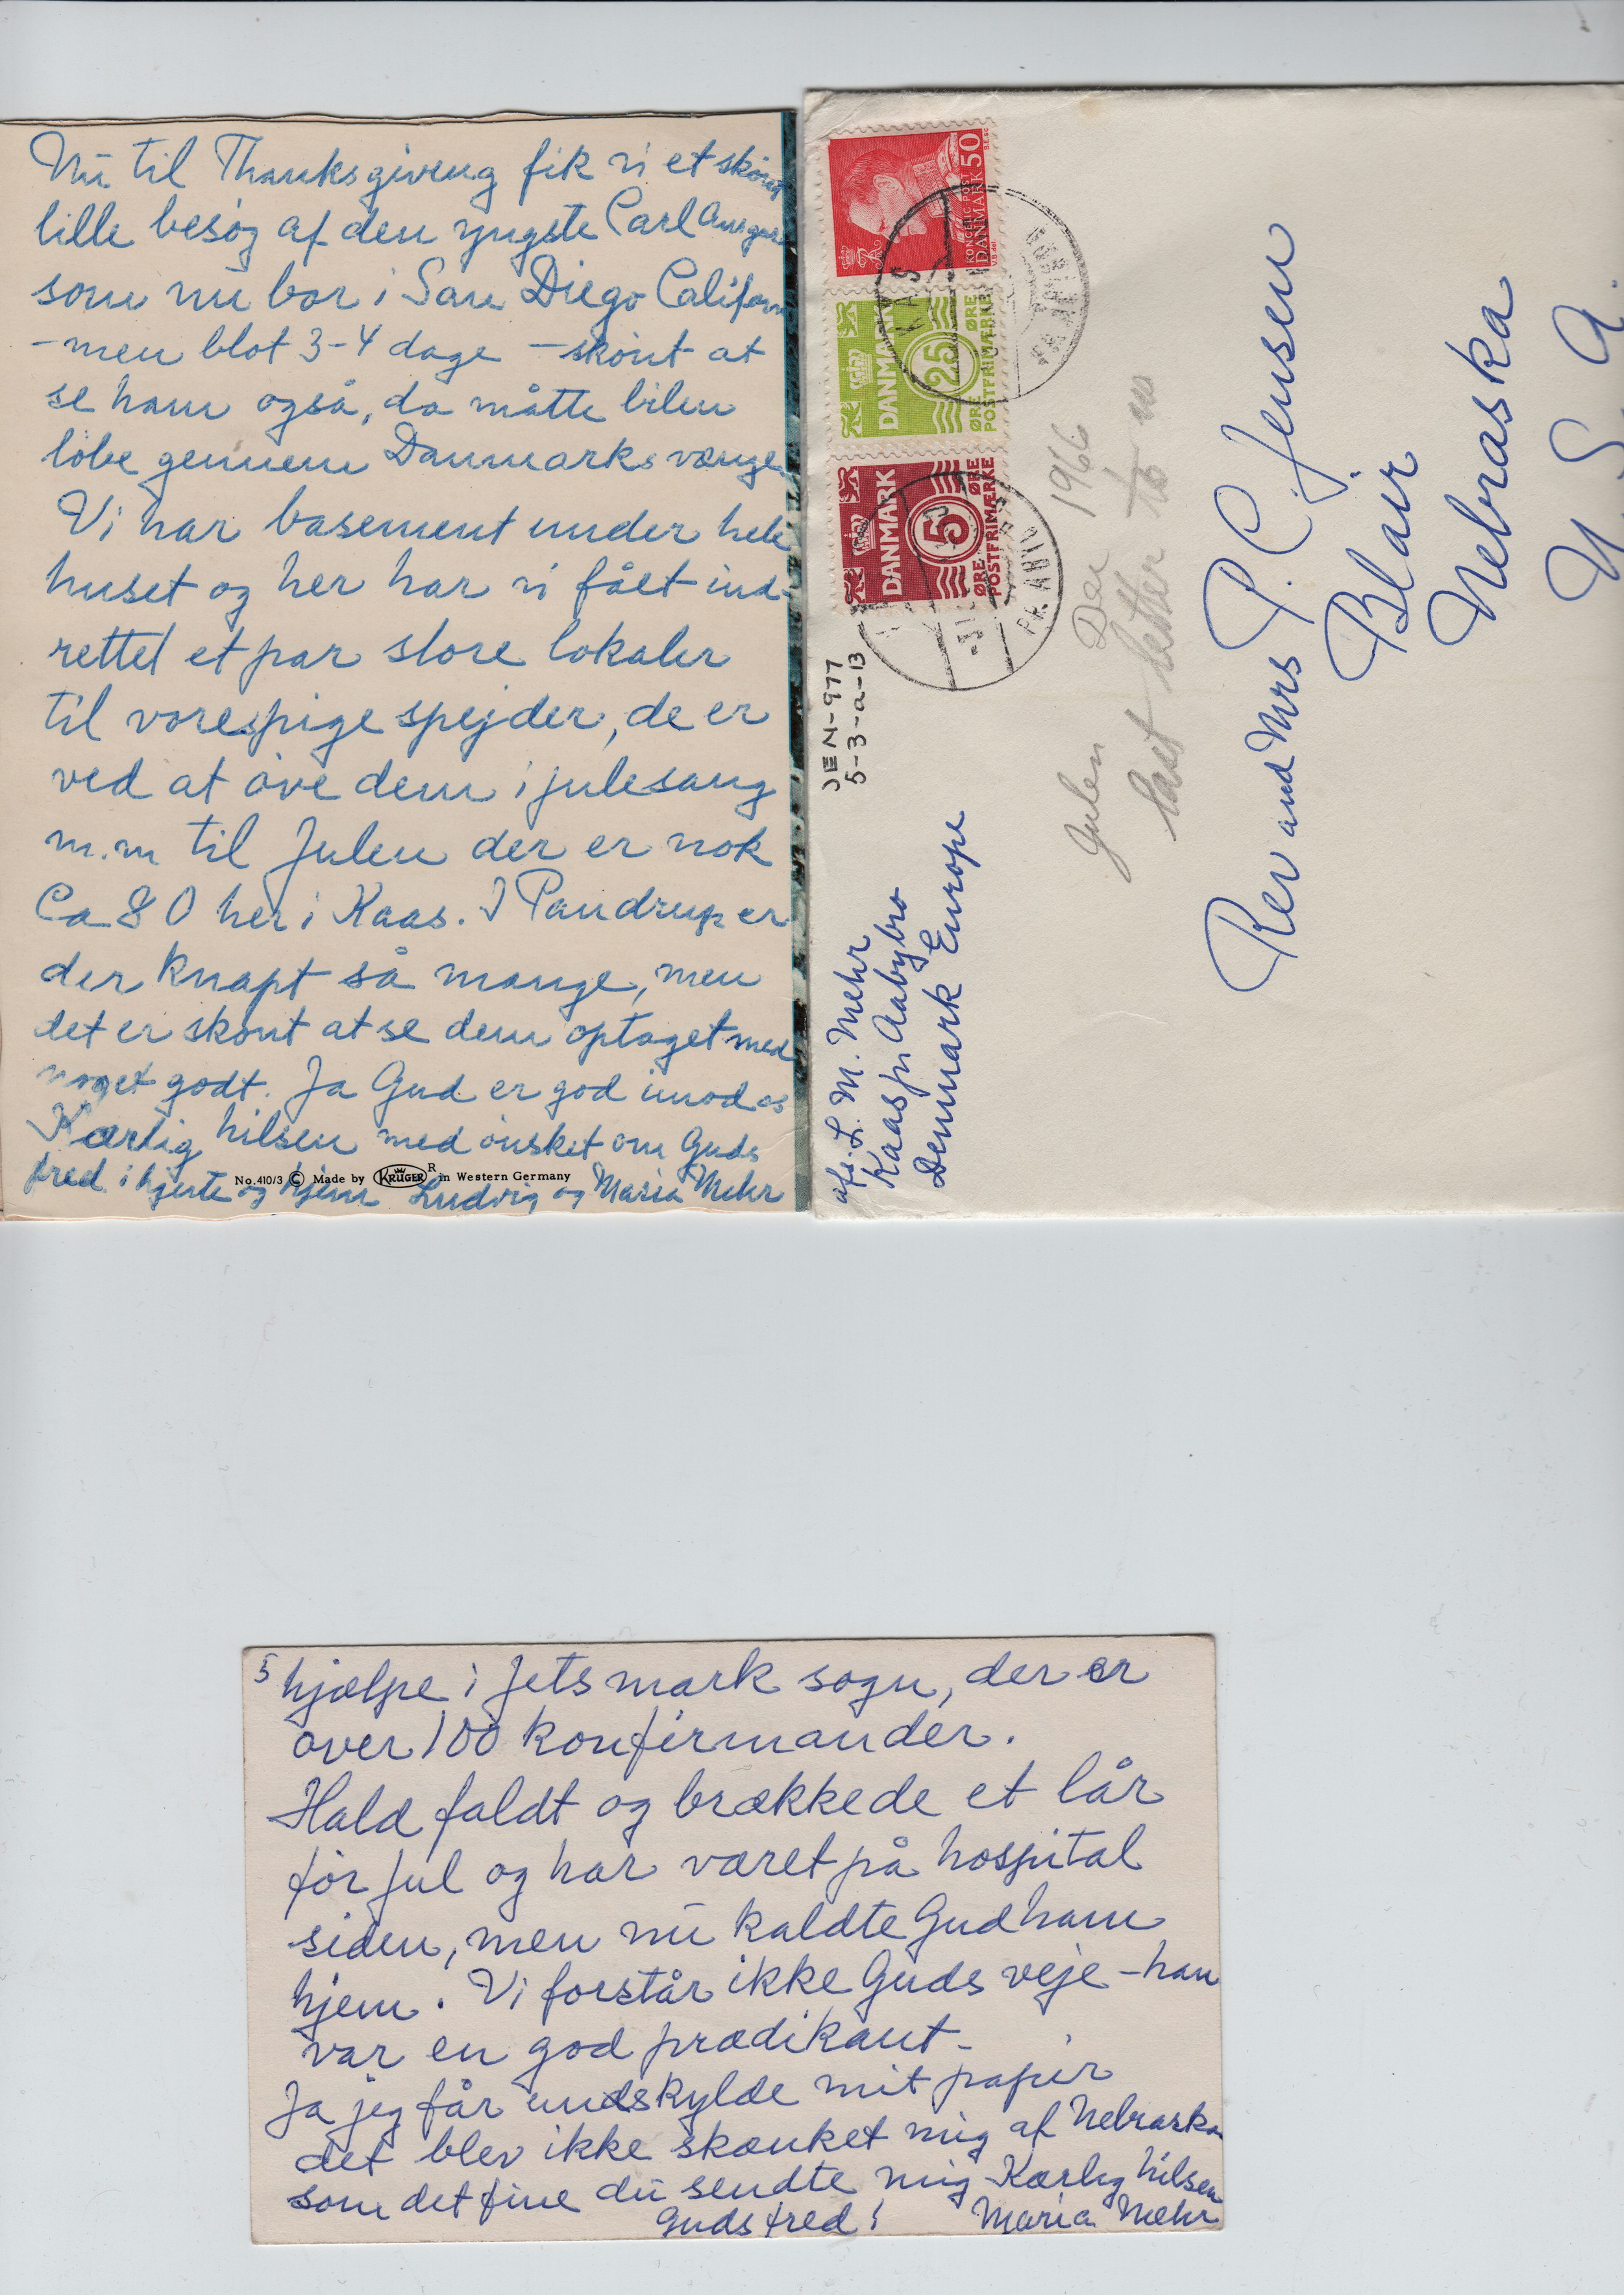 Nu til Thanksgiving fik vi et skønt
lille besøg af den yngste Carl Ansgar
som nu bor i San Diego Californ
-men blot 3-4 dage -skønt at
se ham også, da måtte bilen
løbe gennem Danmarks vænge
Vi har basement under hele
huset og her har vi fået ind-
rettet et par store lokaler
til vore pige spejder, de er
ved at øve dem i julesang
m.m til Julen der er nok
Ca 80 her i Kaas. I Pandrup er
der knapt så mange, men
det er skønt at se dem optaget med
noget godt. Ja Gud er god imod os
Kærlig hilsen med ønsket om Guds
fred i hjerte og hjem Ludvig og Maria Mehr
No. 410/3 © Made by KRÜGER R in Western Germany
KONGELIG POST
DANMARK 50
DANMARK
25
ØRE ØRE
POSTFRIMÆRKE
DANMARK
5
ØRE ØRE
POSTFRIMÆRKE
KAAS
PR. AABYBRO
JEN-977
5-3-a-13
afs. L. M. Mehr
Kaas pr Aabybro
Denmark Europe
Julen Dec 1966
last letter to us
Rev and Mrs P. C. Jensen
Blair
Nebraska
U S A.
5 hjælpe i Jetsmark sogn, der er
over 100 konfirmander.
Hald faldt og brækkede et lår
før jul og har været på hospital
siden, men nu kaldte Gud ham
hjem. Vi forstår ikke Guds veje -han
var en god prædikant-
Ja jeg får undskylde mit papir
det blev ikke skænket mig af Nebraska
som det fine du sendte mig Kærlig hilsen
Guds fred! Maria Mehr